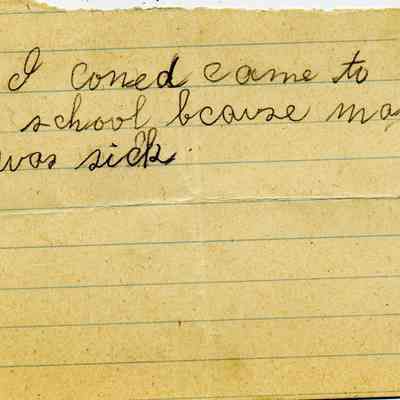 I coned came to
school bcause ma
was sick.